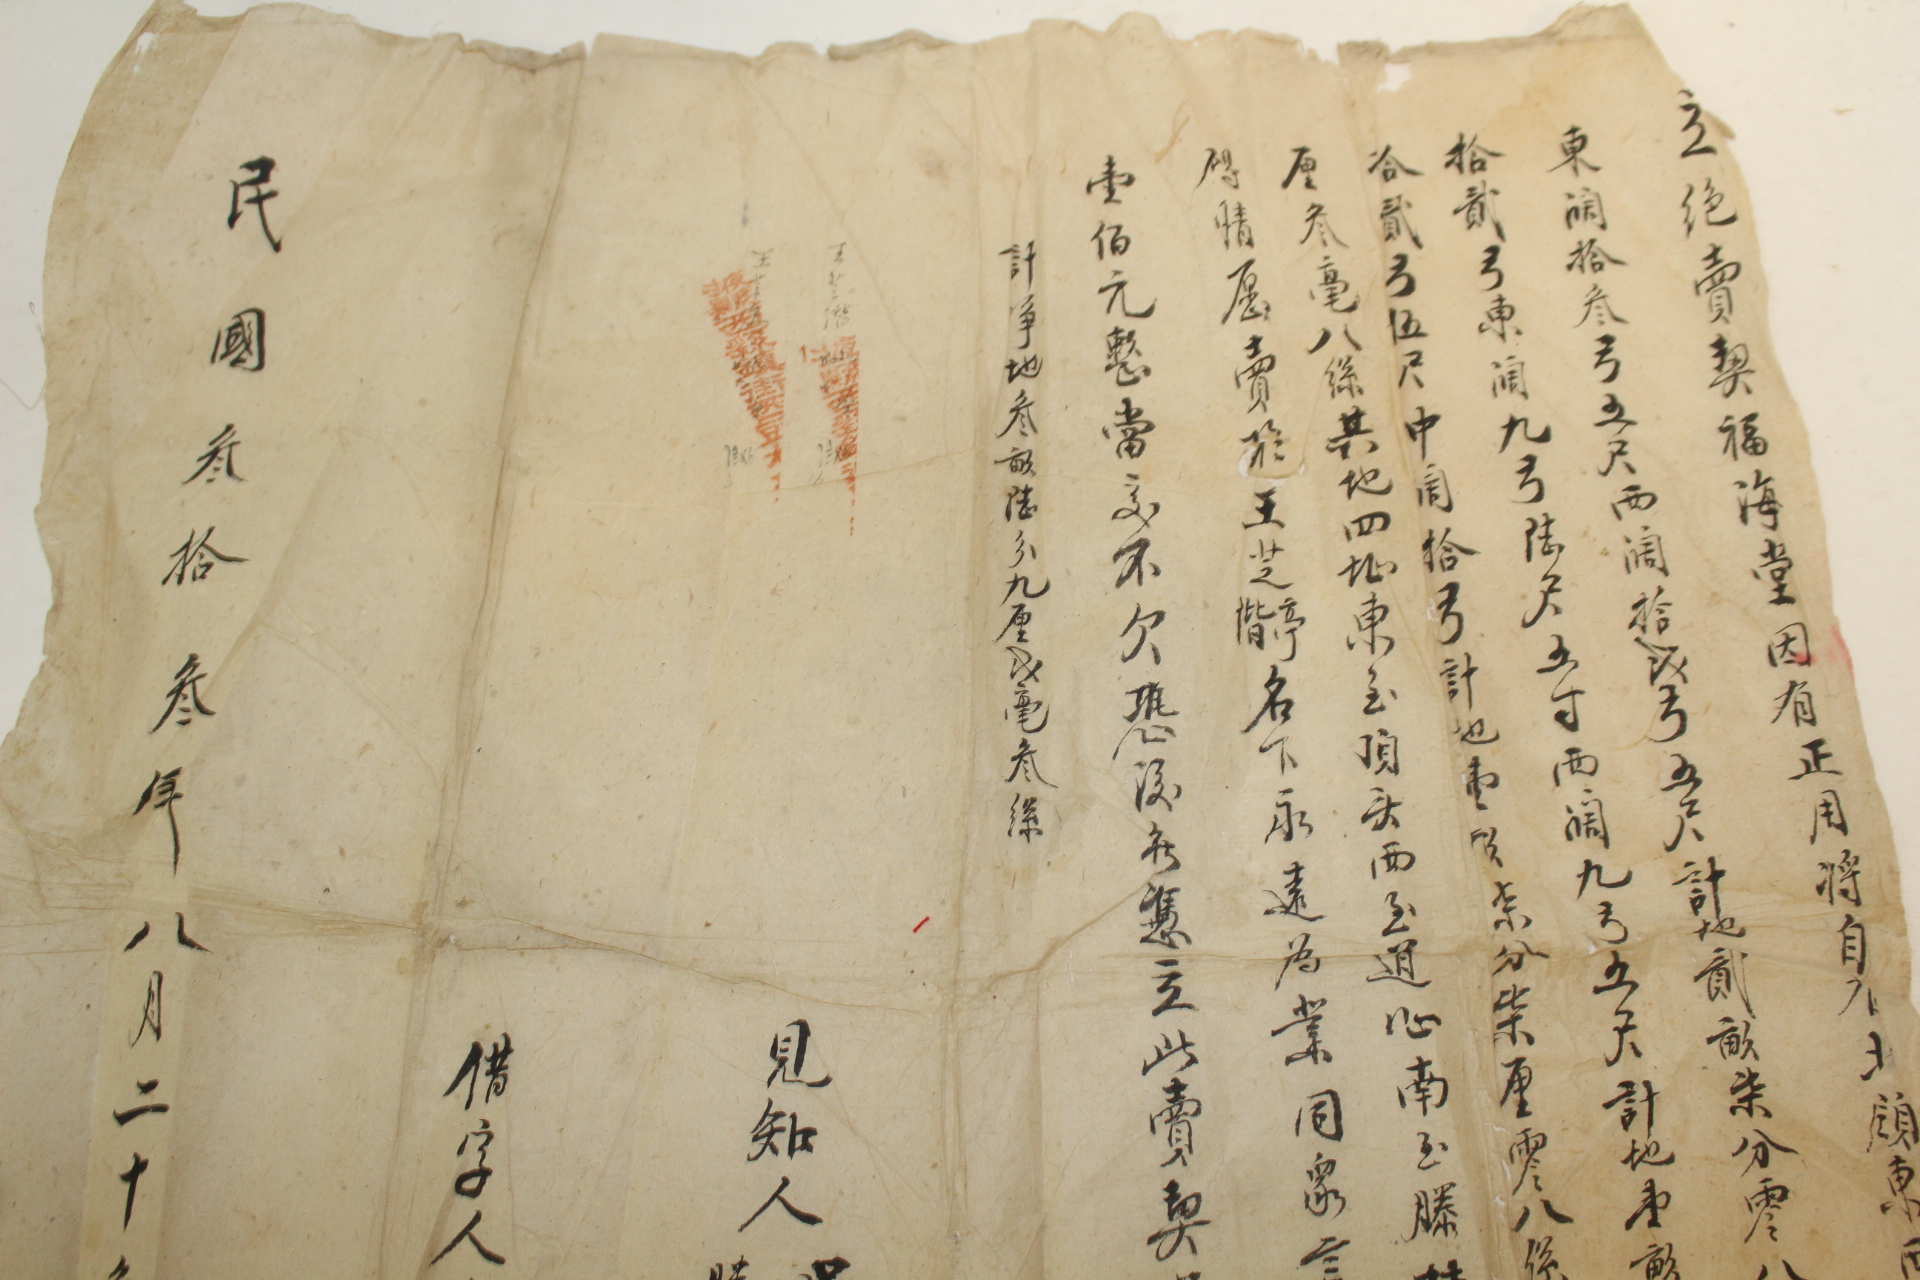 立絶賣契福海堂因有正用將自
東濶拾叁弓五尺西濶拾弍弓五尺計地貳畝柒分零八
拾貳弓東濶九弓陸尺五寸西濶九弓五尺計地壹畝
合貳弓伍尺中濶拾弓計地壹畝柒分柒厘零八絲
厘叁毫八絲其地四址東至頂头西至道心南至滕
情愿賣於王芝亭階名下永遠為業同衆言
壹佰元整當交不欠恐後無憑立此賣契
計净地叁畝陸分九厘弍毫叁絲
見知人
借字人
民國叁拾叁年八月二十